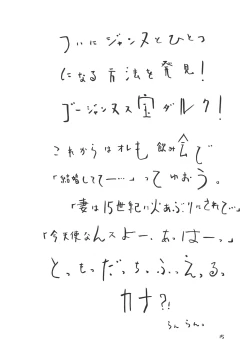 ついにジャンヌとひとつ
になる方法を発見!
ゴージャンヌス宝ダルク!
これからはオレも飲み会で
「結婚してて…」って
「妻は15世紀に火あぶりにされて…」
「今天使なんスよー、あ、はーっ」
と、も、だ、ち、ふ、え、る、
カナ?!
らんらん。